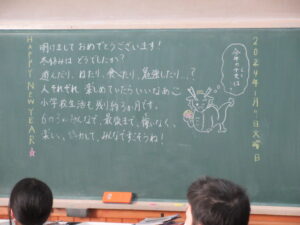 HAPPY NEW YEAR☆
明けましておめでとうございます!
冬休みはどうでしたか?
遊んだり、ねたり、食べたり、勉強したり…?
人それぞれ、楽しめていたらいいなあ
小学校生活も残り約3か月です。
6の みんなで、最後まで、悔いなく、
楽しい して、みんなですごそうね!
今年の干支は
2024年1月 日火曜日